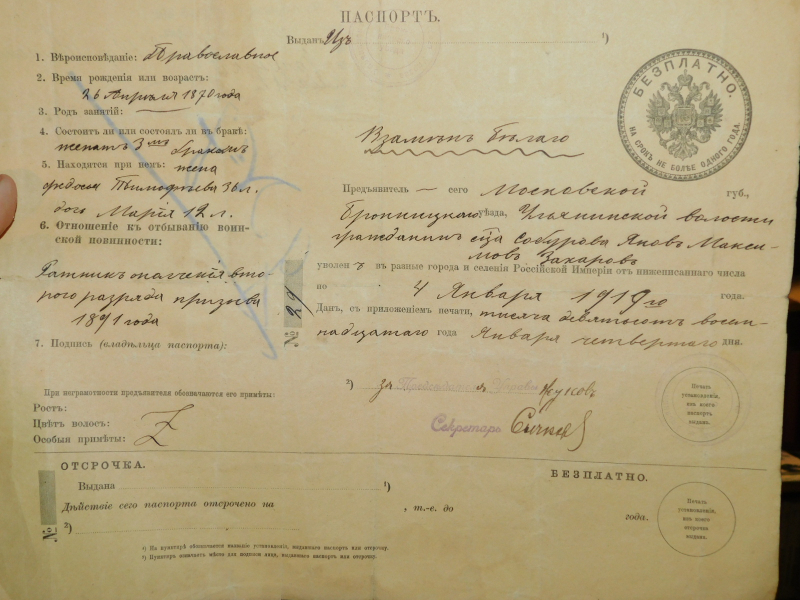 ПАСПОРТЪ.
Выданъ Изъ ¹)
1. Вѣроисповѣданіе: Православное
2. Время рожденія или возрастъ:
26 Апрѣля 1870 года
3. Родъ занятій:
4. Состоитъ ли или состоялъ ли въ бракѣ:
женатъ 3мъ бракомъ
5. Находятся при немъ: жена
Федосья Тимофѣева 36 л.
дочь Марія 12 л.
6. Отношеніе къ отбыванію воин-
ской повинности:
Ратникъ ополченія вто-
рого разряда призыва
1891 года
7. Подпись (владѣльца паспорта):
БЕЗПЛАТНО.
НА СРОКЪ НЕ БОЛѢЕ ОДНОГО ГОДА.
Взамѣнъ Бѣлаго
Предъявитель — сего Московской губ.,
Бронницкаго уѣзда, Ульянинской волости
гражданинъ сца Сабурова Яковъ Макси-
мовъ Захаровъ
уволенъ въ разные города и селенія Россійской Имперіи отъ нижеписаннаго числа
по 4 Января 1919го года.
Данъ, съ приложеніемъ печати, тысяча девятьсотъ восем-
надцатаго года Января четвертаго дня.
№ 29
²) За Предсѣдателя Управы Жуковъ
Секретарь
Печать
установленія,
изъ коего
паспортъ
выданъ.
При неграмотности предъявителя обозначаются его примѣты:
Ростъ:
Цвѣтъ волосъ:
Особыя примѣты:
Z
ОТСРОЧКА.
БЕЗПЛАТНО.
Выдана ¹)
Дѣйствіе сего паспорта отсрочено на , т.-е. до года.
№
²)
Печать
установленія,
изъ коего
отсрочка
выдана.
¹) На пунктирѣ обозначается названіе установленія, выдавшаго паспортъ или отсрочку.
²) Пунктиръ означаетъ мѣсто для подписи лица, выдавшаго паспортъ или отсрочку.